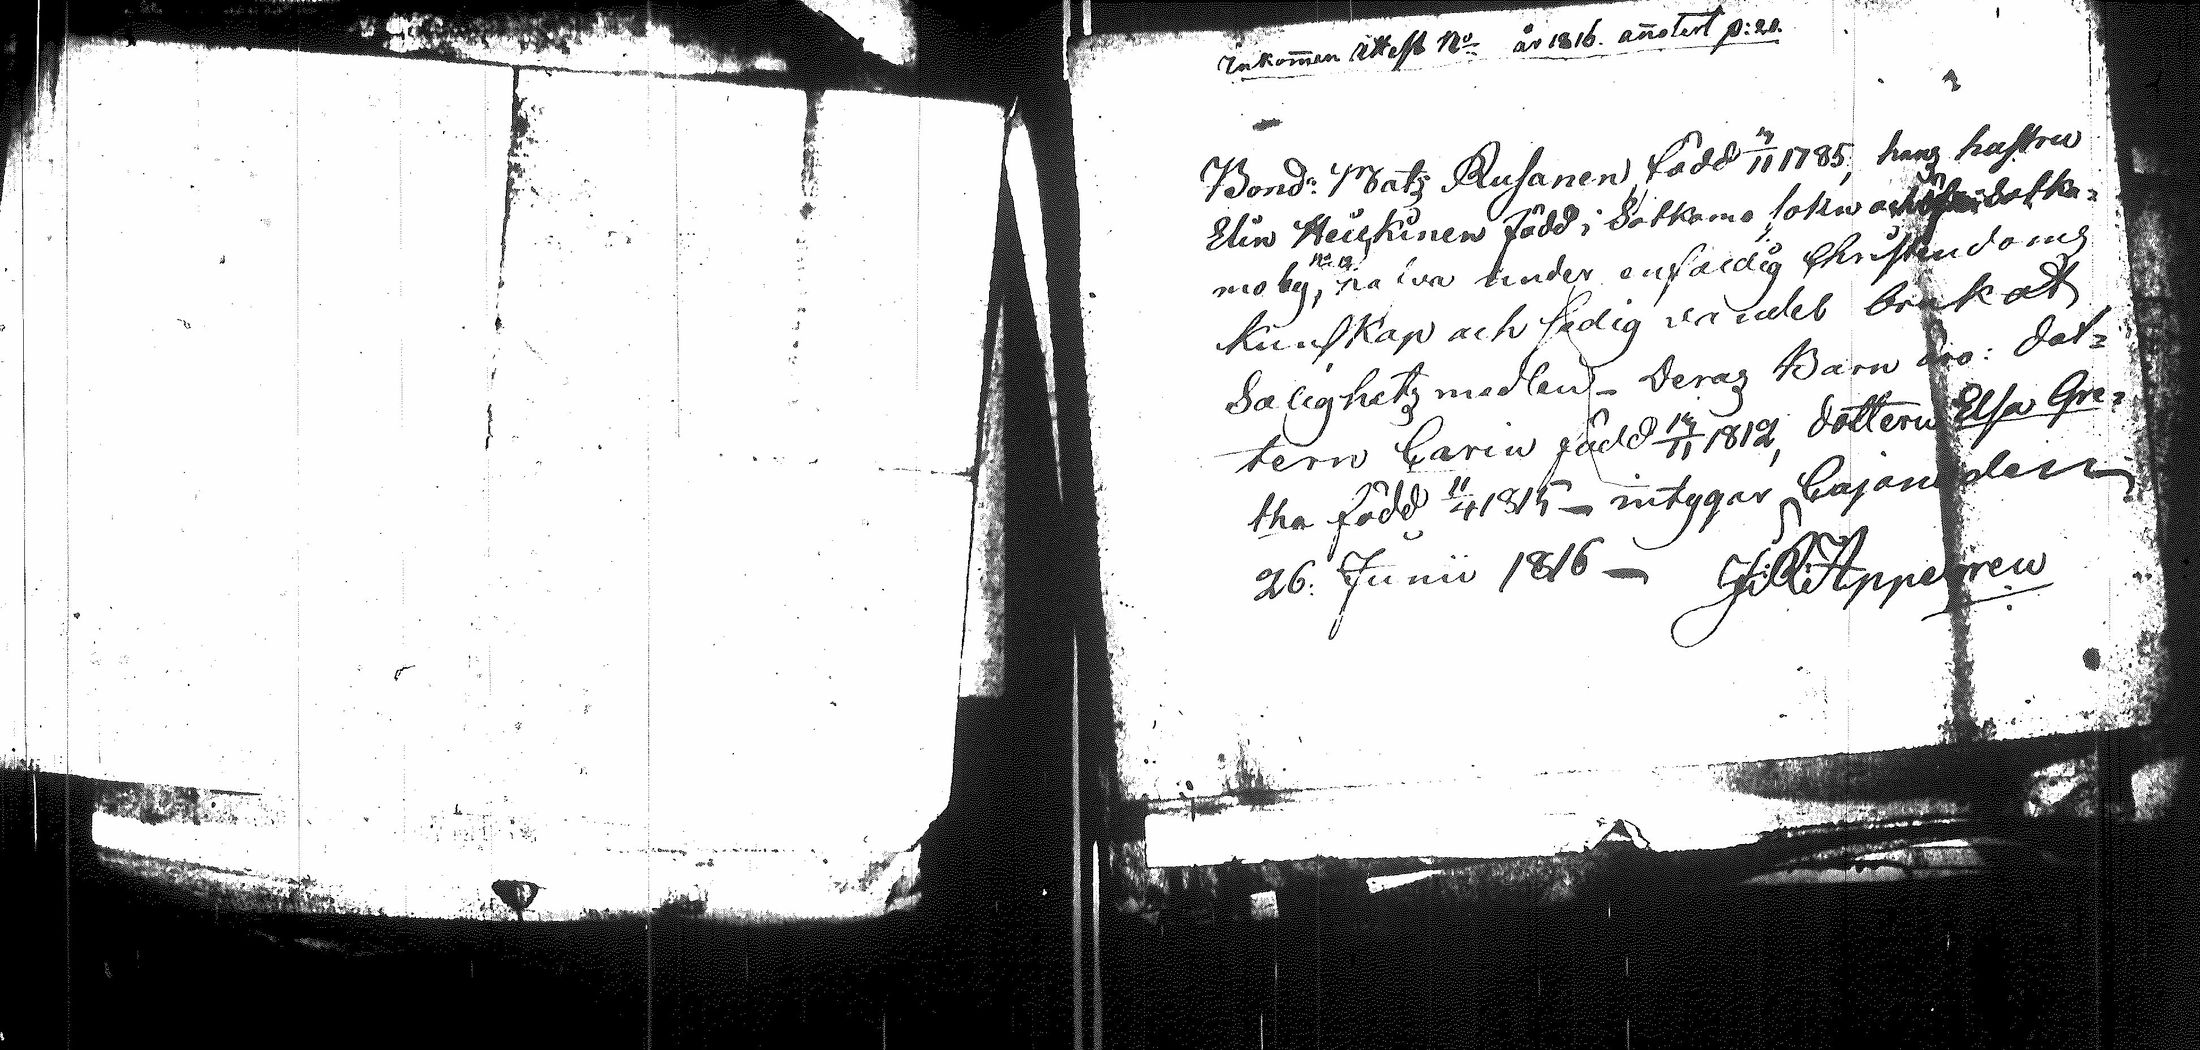 Inkom̄en Attest No år 1816. an̄otert p: 20.
Bond: Matz Rusanen, född 12/11 1785, hans hustru
Elin Heiskinen född i Sotkamo sokn och Sotka=
mo by, No 12, ha två under enfaldig Christendoms
kunskap och sedig vandel brukat
Salighetz medlen – Deras Barn äro: dot=
tern Carin född 12/11 1812, dottern Elsa Gre=
tha född 11/4 1815 – intygar Cajana den
26. Junii 1816 — Appelgren